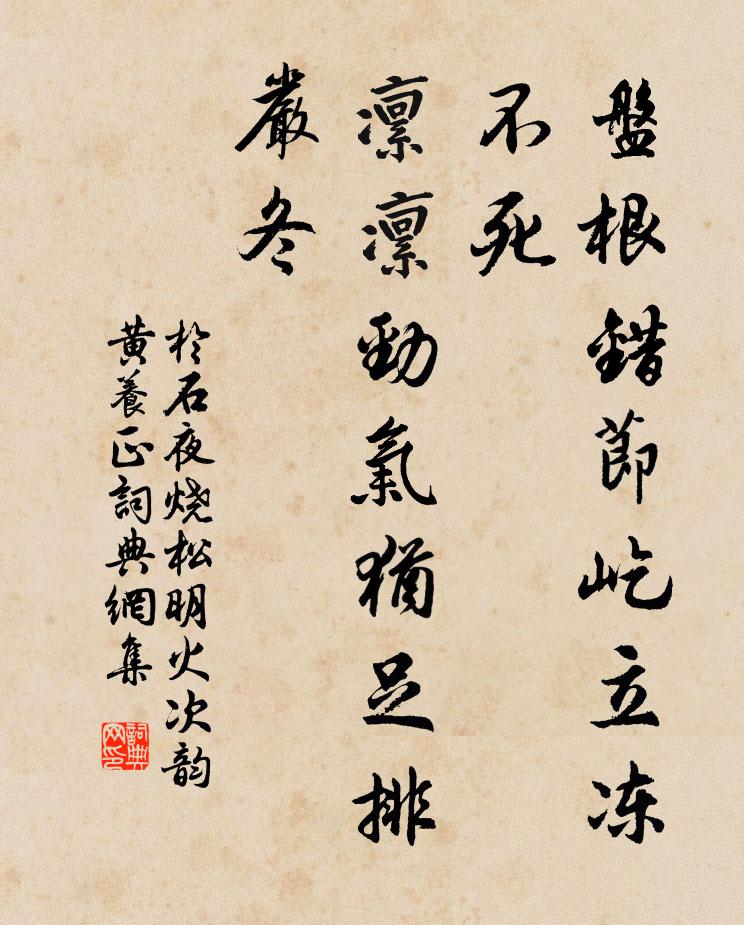 盤根錯節屹立冻
不死
凛凛勁氣猶足排
嚴冬
於石夜烧松明火次韵
黄養正詞典網集
詞典网印